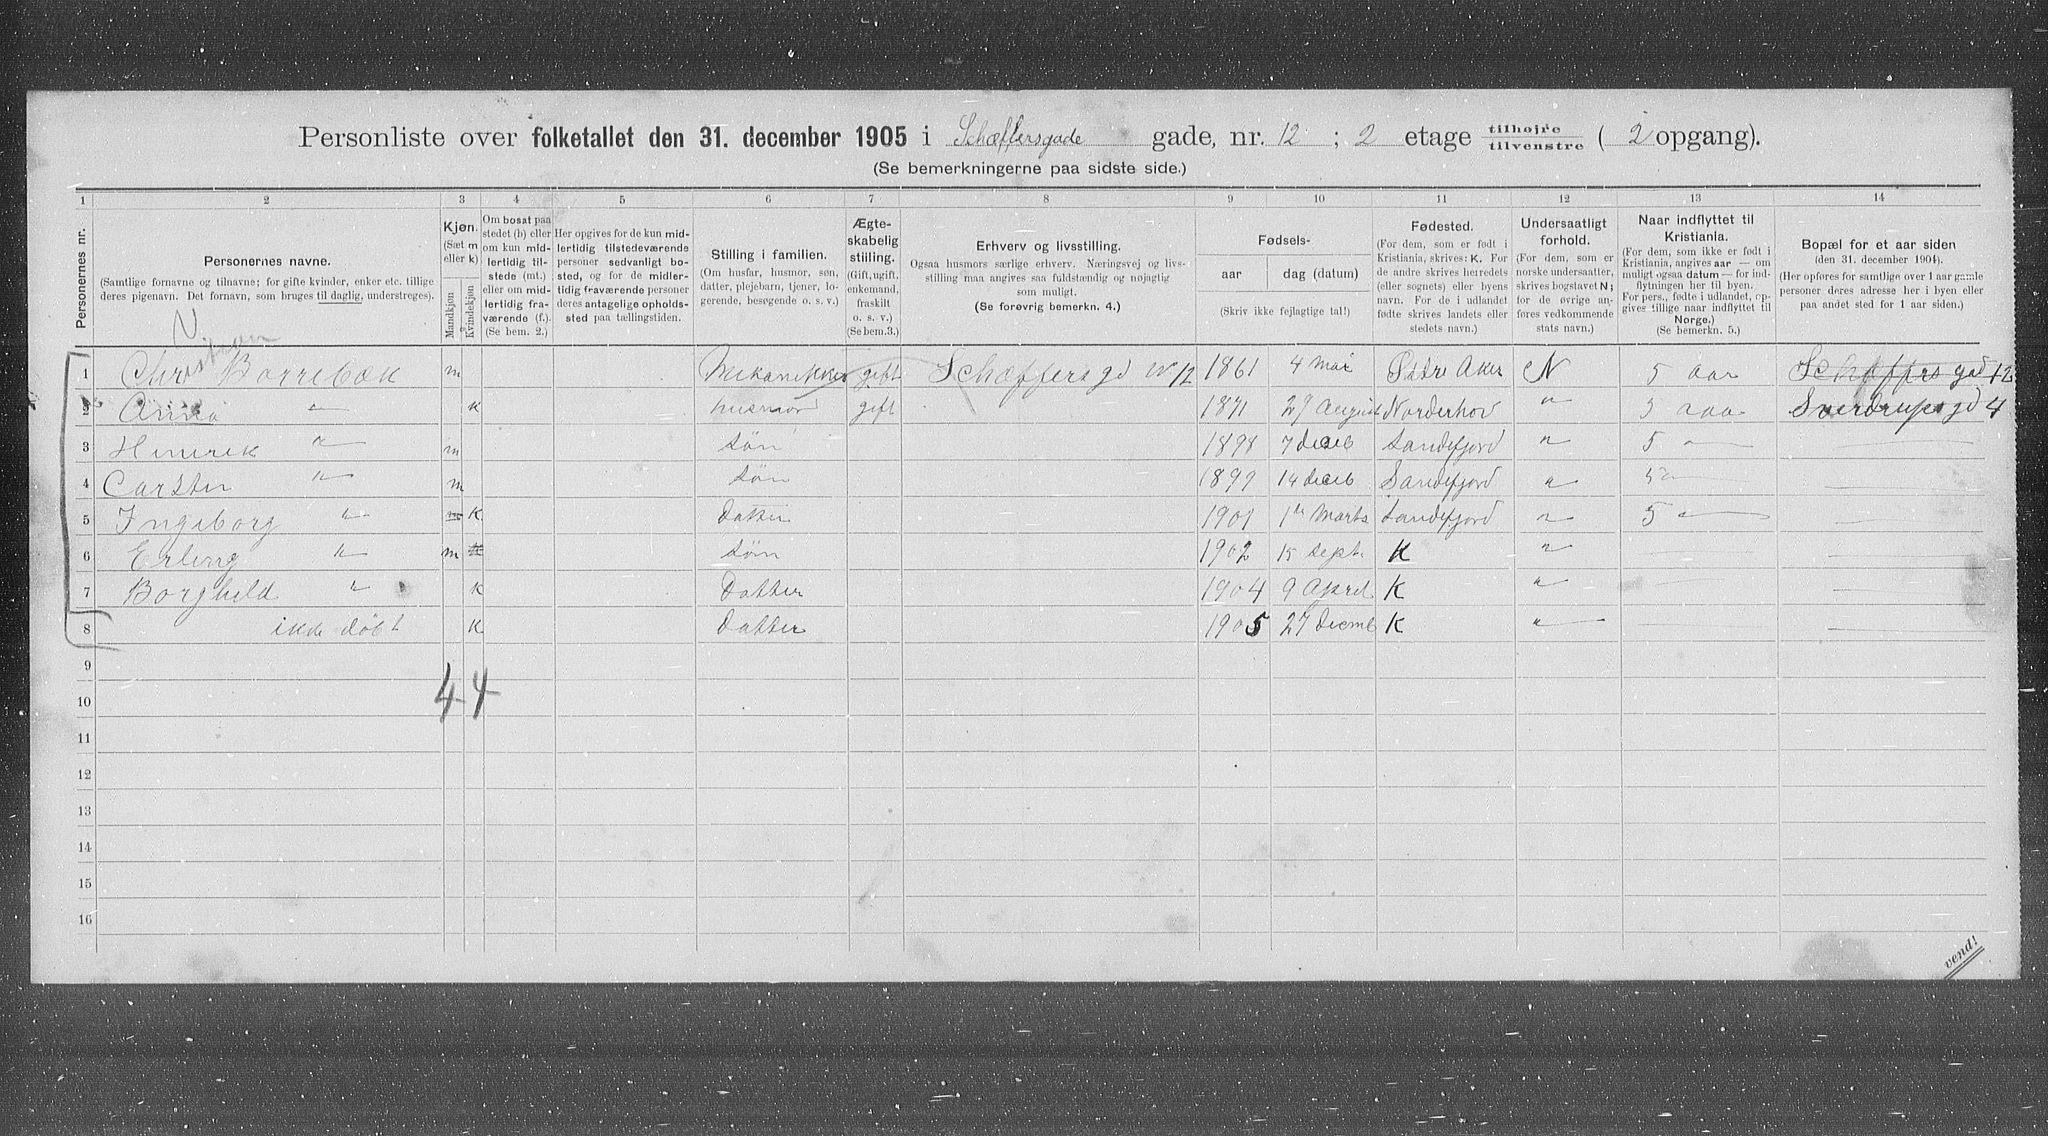 Personliste over folketallet den 31. december 1905 i Schæffersgade gade, nr. 12 ; 2 etage tilhøjre tilvenstre ( 2 opgang).
(Se bemerkningerne paa sidste side.)
1 2 3 4 5 6 7 8 9 10 11 12 13 14
Personernes nr.
Personernes navne.
(Samtlige fornavne og tilnavne; for gifte kvinder, enker etc. tillige deres pigenavn. Det fornavn, som bruges til daglig, understreges).
Kjøn.
(Sæt m eller k)
Mandkjøn
Kvindekjøn
Om bosat paa stedet (b) eller om kun midlertidig tilstede (mt.) eller om midlertidig fraværende (f.). (Se bem. 2.)
Her opgives for de kun midlertidig tilstedeværende personer sedvanligt bosted, og for de midlertidig fraværende personer deres antagelige opholdssted paa tællingstiden.
Stilling i familien.
(Om husfar, husmor, søn, datter, plejebarn, tjener, logerende, besøgende o. s. v.)
Ægteskabelig stilling.
(Gift, ugift, enkemand, fraskilt o. s. v.)
(Se bem. 3.)
Erhverv og livsstilling.
Ogsaa husmors særlige erhverv. Næringsvej og livsstilling maa angives saa fuldstændig og nøjagtig som muligt.
(Se forøvrig bemerkn. 4.)
Fødsels-
aar
dag (datum)
(Skriv ikke fejlagtige tal!)
Fødested.
(For dem, som er født i Kristiania, skrives: K. For de andre skrives herredets (eller sognets) eller byens navn. For de i udlandet fødte skrives landets eller stedets navn.)
Undersaatligt forhold.
(For dem, som er norske undersaatter, skrives bogstavet N; for de øvrige anføres vedkommende stats navn.)
Naar indflyttet til Kristiania.
(For dem, som ikke er født i Kristiania, angives aar — om muligt ogsaa datum — for indflytningen her til byen. For pers., fødte i udlandet, opgives tillige naar indflyttet til Norge.)
(Se bemerkn. 5.)
Bopæl for et aar siden
(den 31. december 1904).
(Her opføres for samtlige over 1 aar gamle personer deres adresse her i byen eller paa andet sted for 1 aar siden.)
1 Christian N. Borrebæk m Mekanikker gift Schæffers gd No 12 1861 4 Mai Østre Aker N 5 aar Schæffers gad 12
2 Anna " k husmor gift 1871 29 August Norderhov " 5 aaa Sverdrups gd 4
3 Henrik " m søn 1898 7 deceb Sandefjord " 5 "
4 Carsten " m søn 1899 14 deceb Sandefjord " 5 "
5 Ingeborg " m k Datter 1901 1te Marts Sandefjord " 5 "
6 Erling " m k søn 1902 15 Sept. K "
7 Borghild " k Datter 1904 9 April K "
8 ikke døbt k Datter 1905 27 Decmb K "
9
4 4
10
11
12
13
14
15
16
vend!